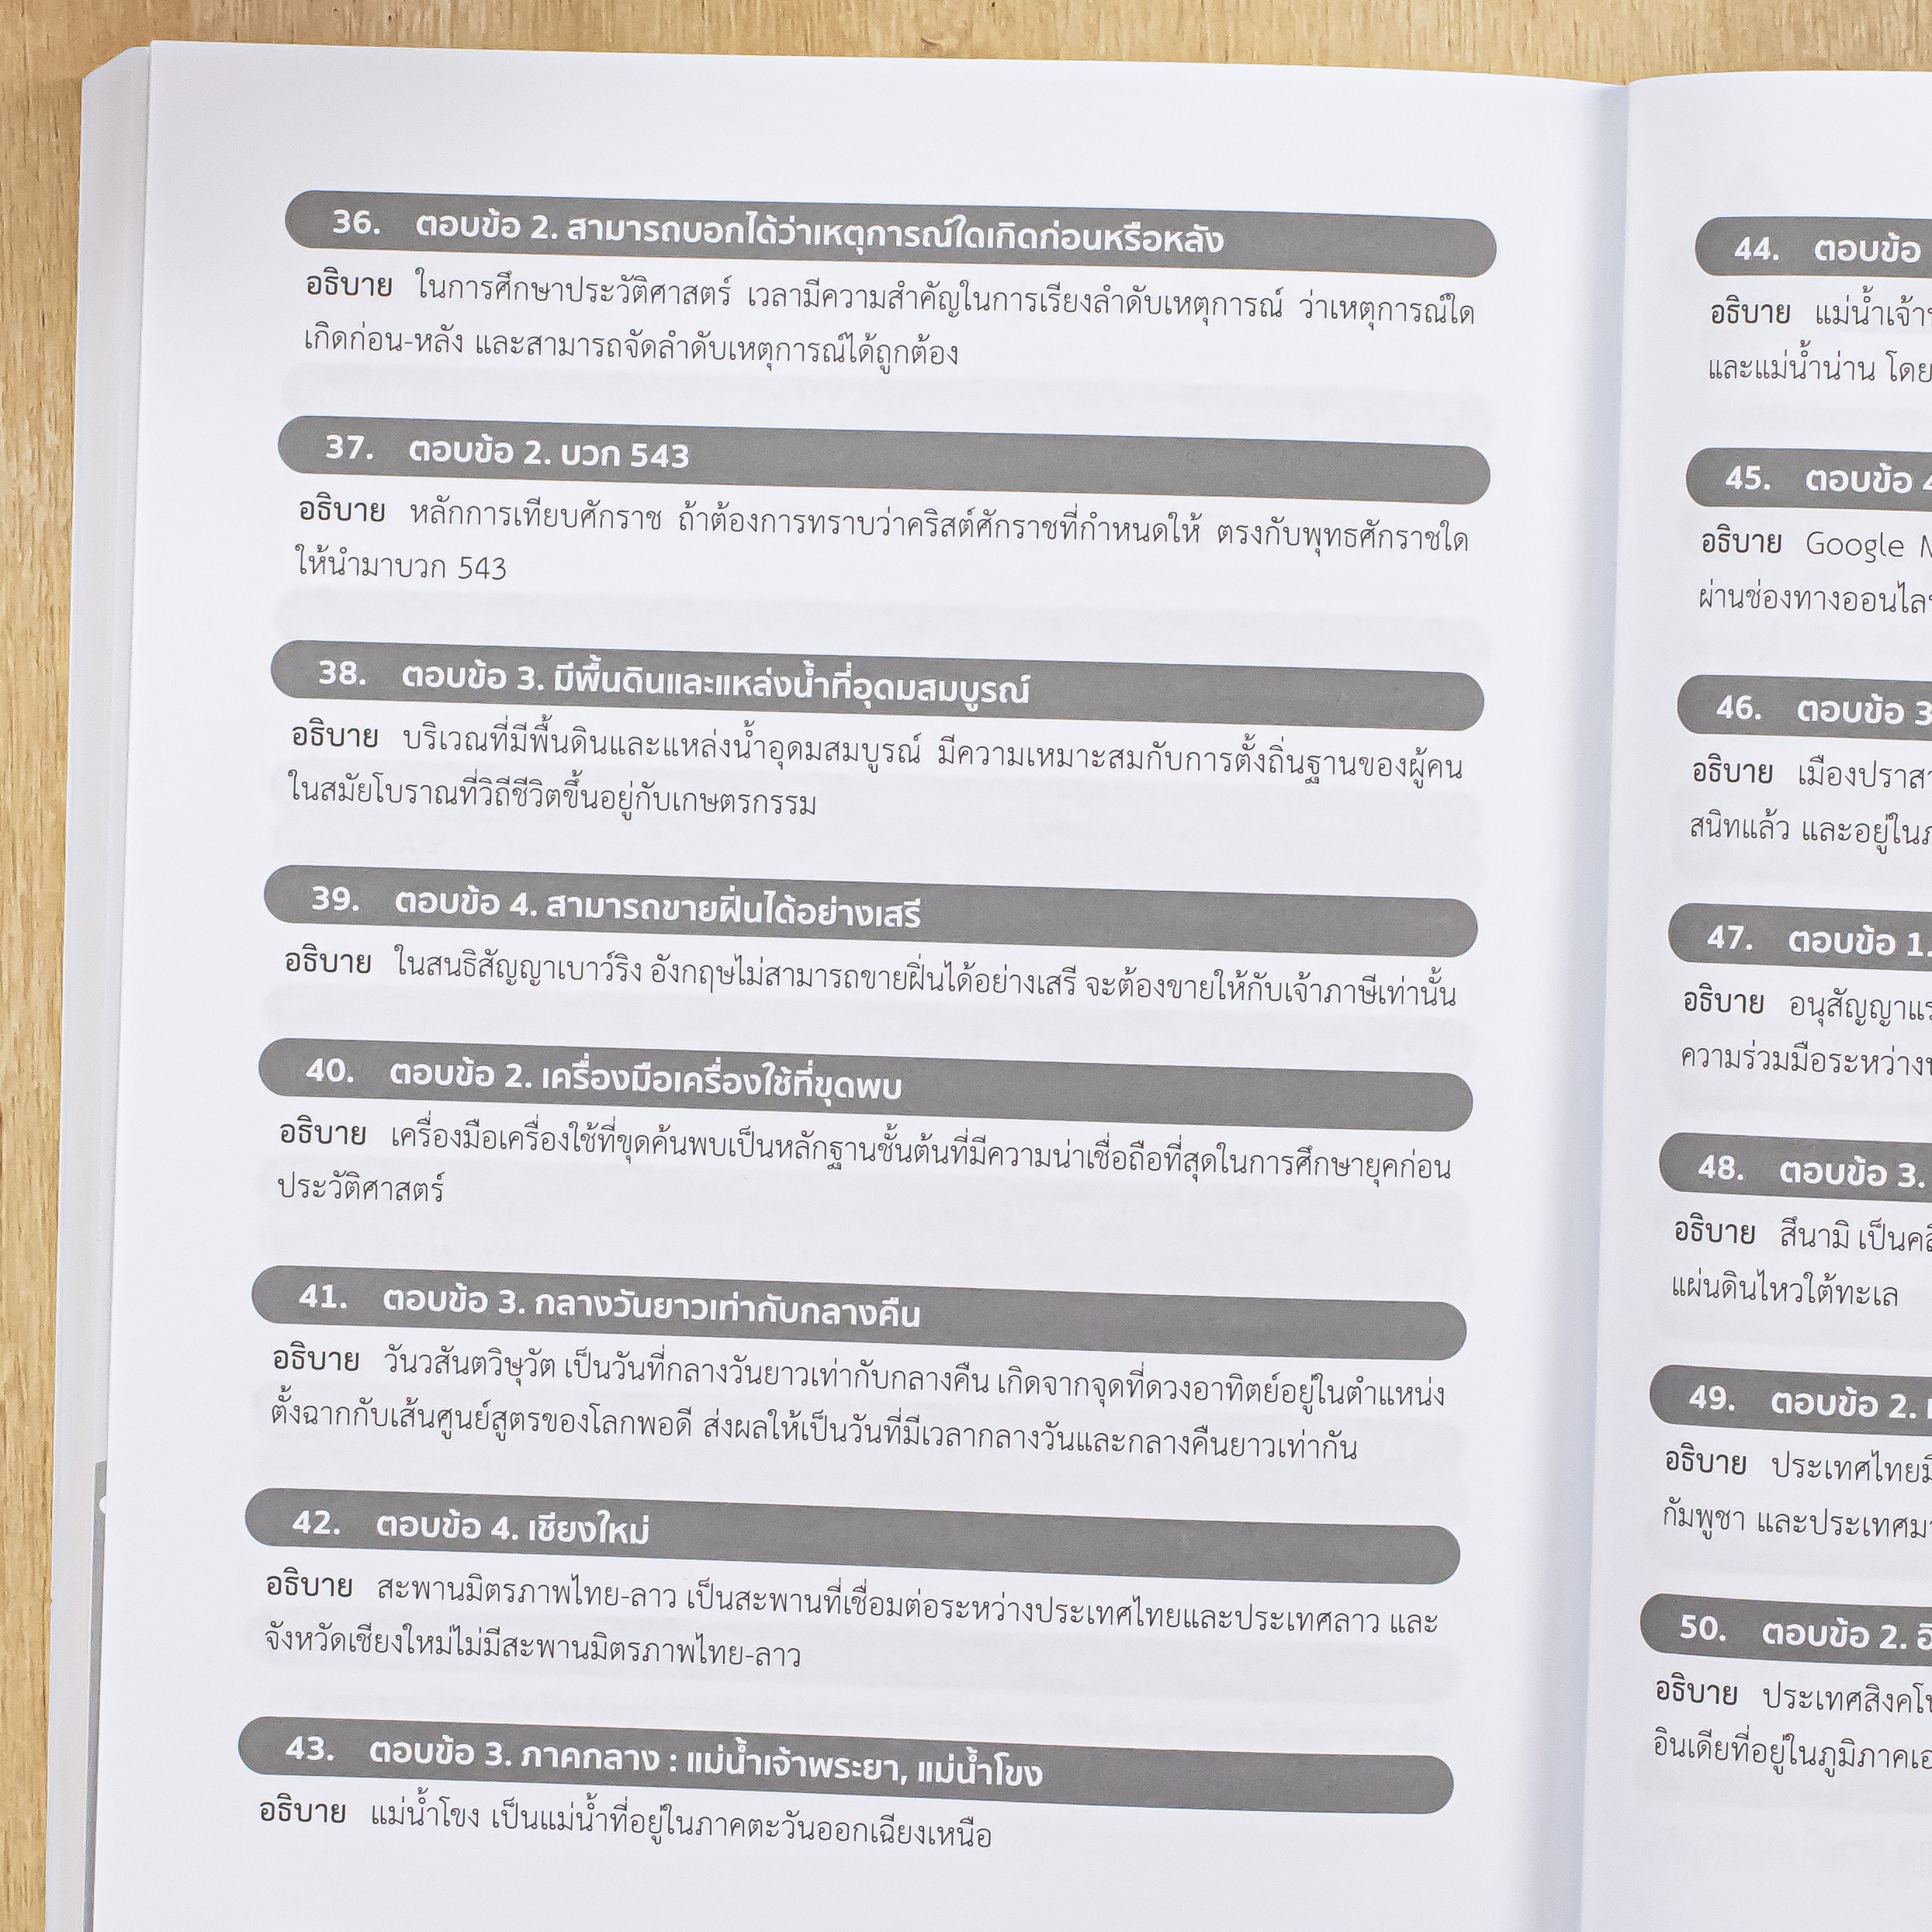 36. ตอบข้อ 2. สามารถบอกได้ว่าเหตุการณ์ใดเกิดก่อนหรือหลัง
อธิบาย ในการศึกษาประวัติศาสตร์ เวลามีความสำคัญในการเรียงลำดับเหตุการณ์ ว่าเหตุการณ์ใด
เกิดก่อน-หลัง และสามารถจัดลำดับเหตุการณ์ได้ถูกต้อง
37. ตอบข้อ 2. บวก 543
อธิบาย หลักการเทียบศักราช ถ้าต้องการทราบว่าคริสต์ศักราชที่กำหนดให้ ตรงกับพุทธศักราชใด
ให้นำมาบวก 543
38. ตอบข้อ 3. มีพื้นดินและแหล่งน้ำที่อุดมสมบูรณ์
อธิบาย บริเวณที่มีพื้นดินและแหล่งน้ำอุดมสมบูรณ์ มีความเหมาะสมกับการตั้งถิ่นฐานของผู้คน
ในสมัยโบราณที่วิถีชีวิตขึ้นอยู่กับเกษตรกรรม
39. ตอบข้อ 4. สามารถขายฝิ่นได้อย่างเสรี
อธิบาย ในสนธิสัญญาเบาว์ริง อังกฤษไม่สามารถขายฝิ่นได้อย่างเสรี จะต้องขายให้กับเจ้าภาษีเท่านั้น
40. ตอบข้อ 2. เครื่องมือเครื่องใช้ที่ขุดพบ
อธิบาย เครื่องมือเครื่องใช้ที่ขุดค้นพบเป็นหลักฐานชั้นต้นที่มีความน่าเชื่อถือที่สุดในการศึกษายุคก่อน
ประวัติศาสตร์
41. ตอบข้อ 3. กลางวันยาวเท่ากับกลางคืน
อธิบาย วันวสันตวิษุวัต เป็นวันที่กลางวันยาวเท่ากับกลางคืน เกิดจากจุดที่ดวงอาทิตย์อยู่ในตำแหน่ง
ตั้งฉากกับเส้นศูนย์สูตรของโลกพอดี ส่งผลให้เป็นวันที่มีเวลากลางวันและกลางคืนยาวเท่ากัน
42. ตอบข้อ 4. เชียงใหม่
อธิบาย สะพานมิตรภาพไทย-ลาว เป็นสะพานที่เชื่อมต่อระหว่างประเทศไทยและประเทศลาว และ
จังหวัดเชียงใหม่ไม่มีสะพานมิตรภาพไทย-ลาว
43. ตอบข้อ 3. ภาคกลาง : แม่น้ำเจ้าพระยา, แม่น้ำโขง
อธิบาย แม่น้ำโขง เป็นแม่น้ำที่อยู่ในภาคตะวันออกเฉียงเหนือ
44. ตอบข้อ
อธิบาย แม่น้ำเจ้า
และแม่น้ำน่าน โดย
45. ตอบข้อ 4
อธิบาย Google
ผ่านช่องทางออนไล
46. ตอบข้อ 3
อธิบาย เมืองปราสา
สนิทแล้ว และอยู่ใน
47. ตอบข้อ 1.
อธิบาย อนุสัญญาแร
ความร่วมมือระหว่าง
48. ตอบข้อ 3.
อธิบาย สึนามิ เป็น
แผ่นดินไหวใต้ทะเล
49. ตอบข้อ 2.
อธิบาย ประเทศไทย
กัมพูชา และประเทศ
50. ตอบข้อ 2.
อธิบาย ประเทศสิงคโ
อินเดียที่อยู่ในภูมิภาค